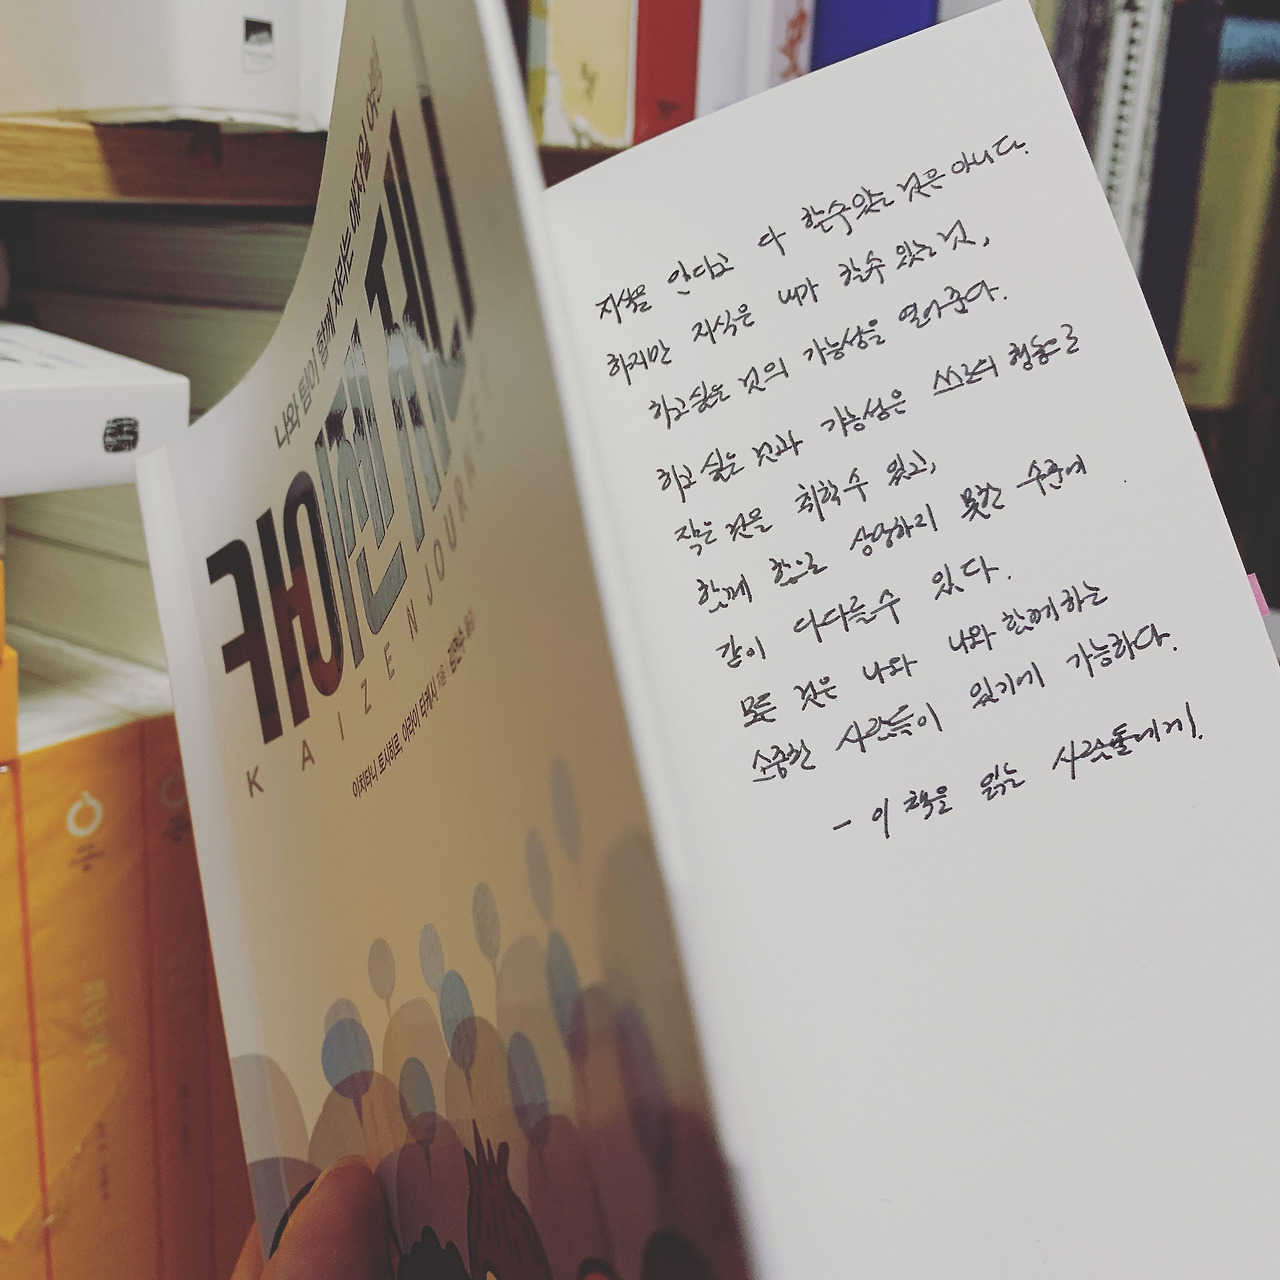 나와 팀이 함께 자라는 애자일 여행
카이젠 저니
KAIZEN JOURNEY
이치타니 토시히로, 아라이 타케시 지음 김연수 옮김
지식을 안다고 다 할수있는 것은 아니다.
하지만 지식은 내가 할수 있는 것,
하고싶은 것의 가능성을 열어준다.
하고 싶은 것과 가능성은 스스로의 행동으로
작은 것을 취할수 있고,
함께 함으로 상상하지 못한 수준에
같이 다다를수 있다.
모든 것은 나와 나와 함께하는
소중한 사람들이 있기에 가능하다.
- 이 책을 읽는 사람들에게.